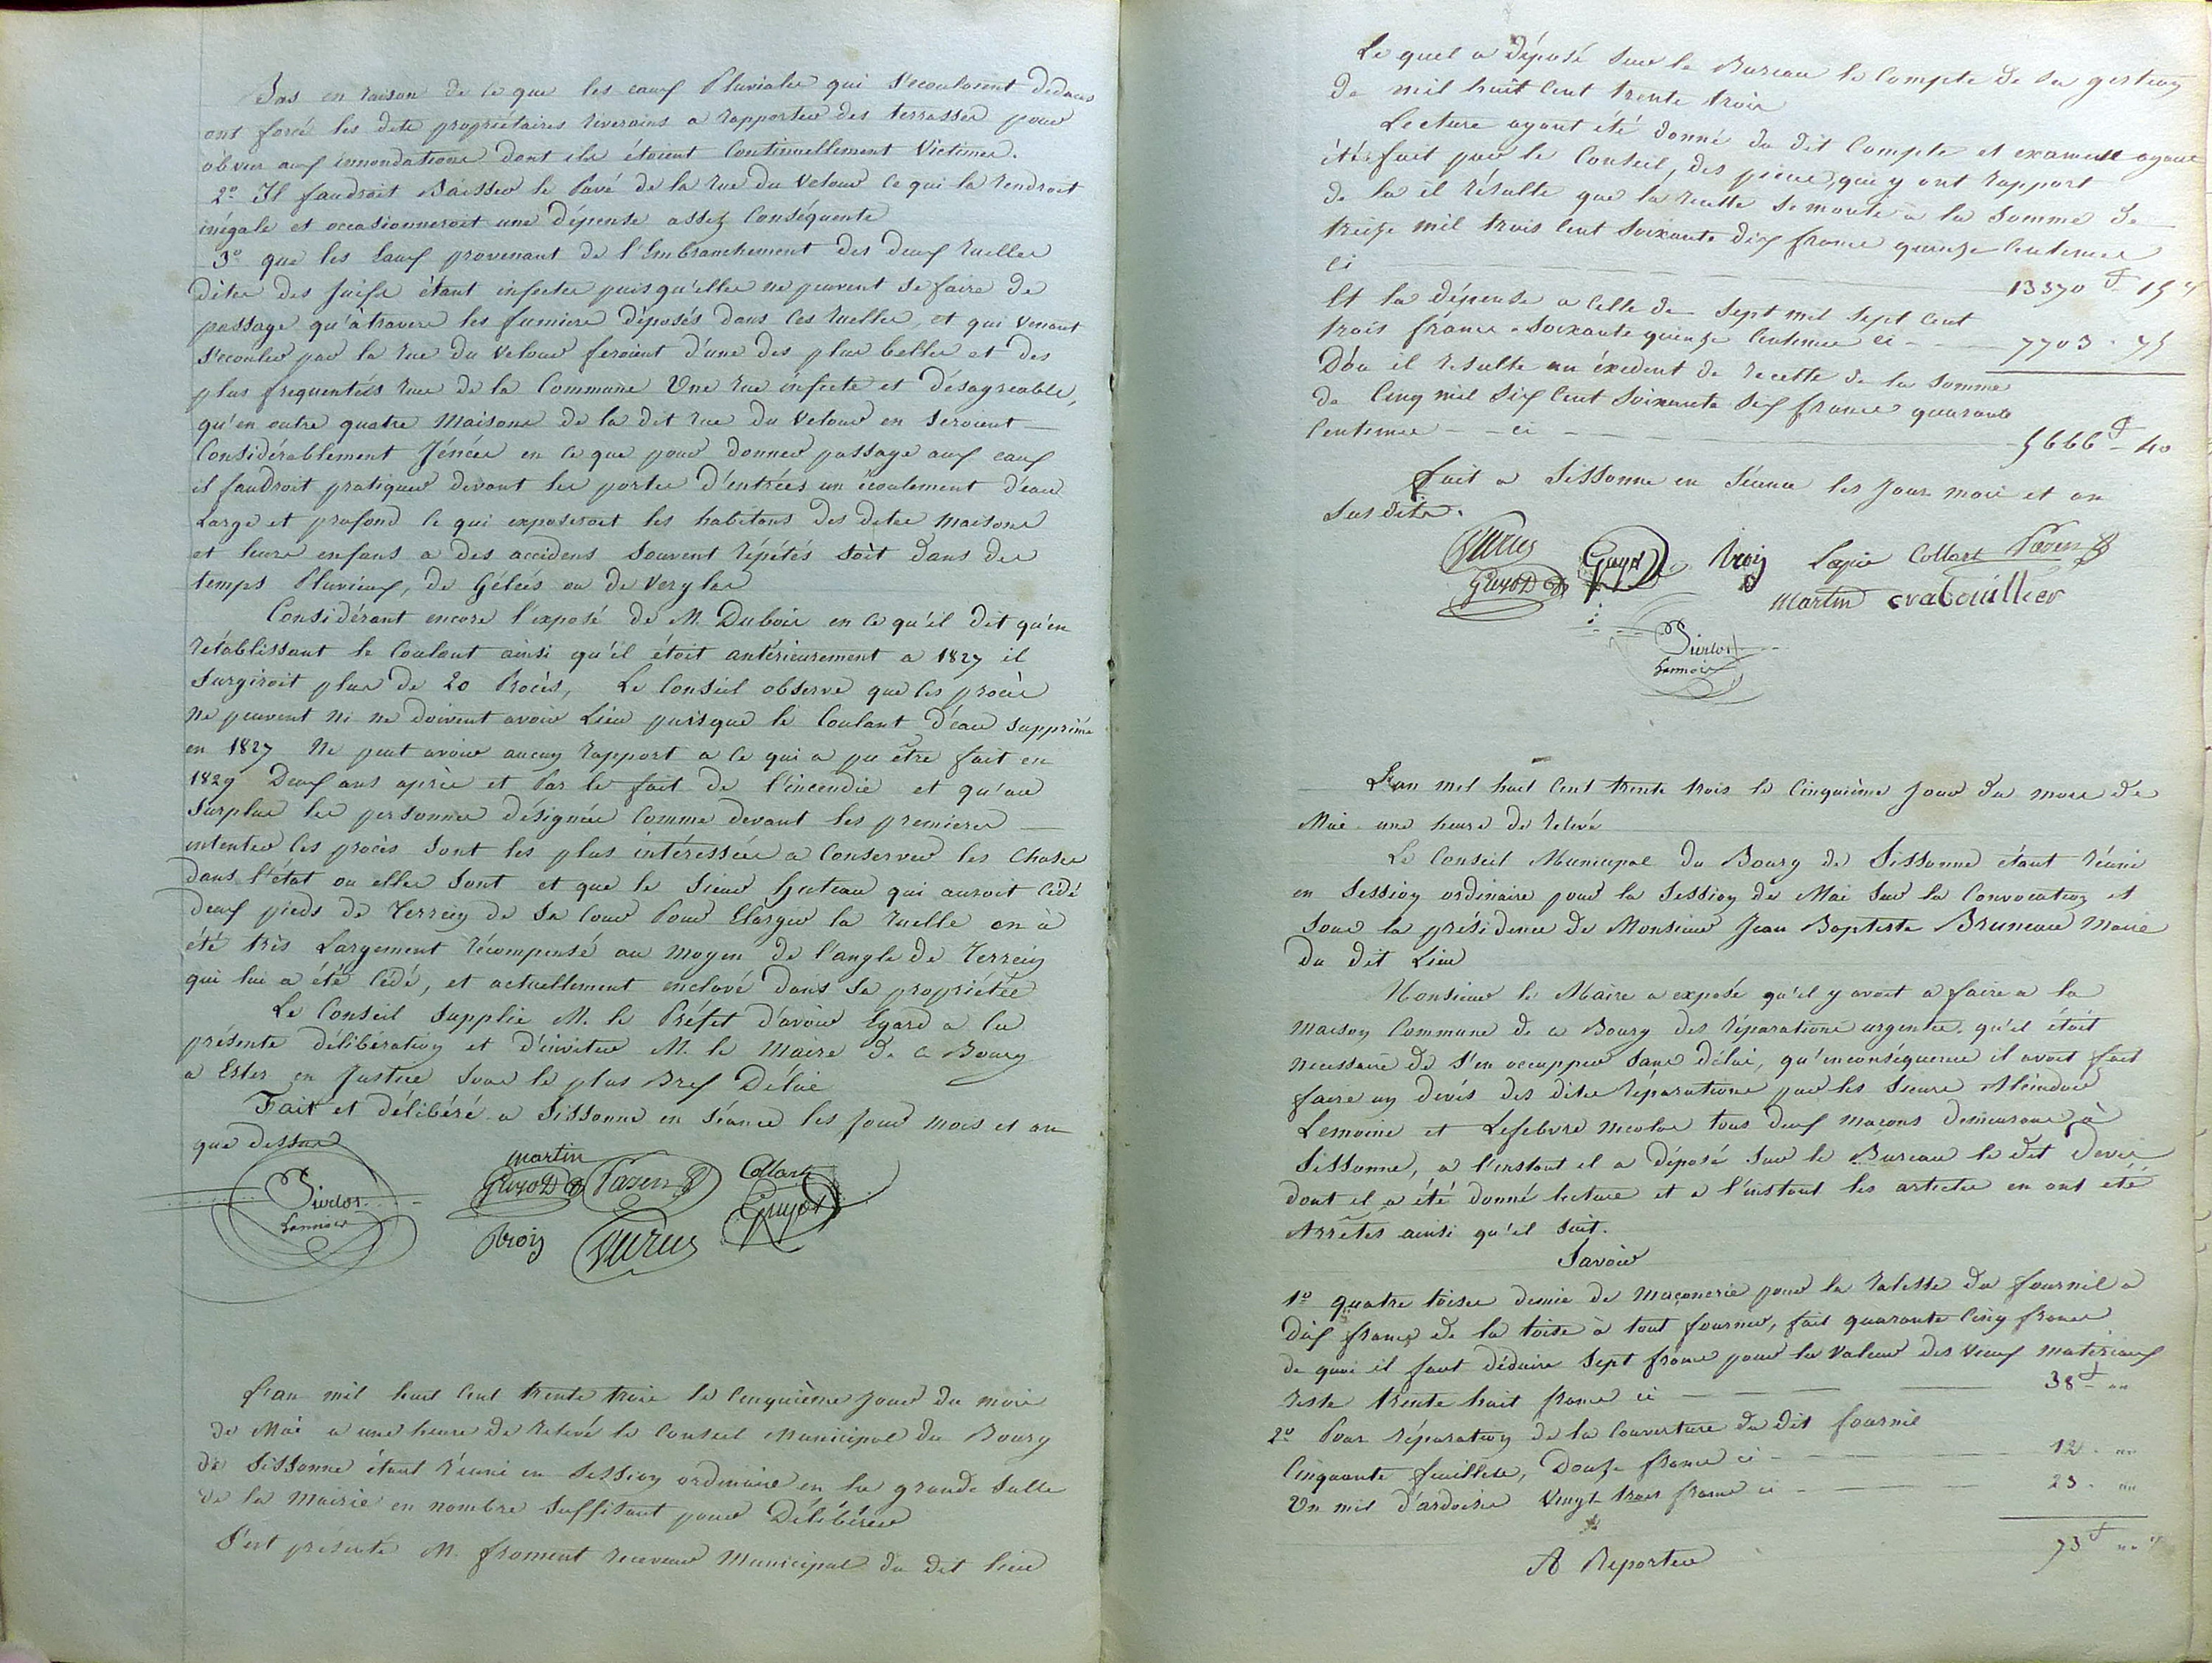 Pas en raison de ce que les eaux Pluviales qui s'ecouloient dedans
ont forcé les dits propriétaires riverains a rapporter des terrasses pour
obvier aux innondations dont ils étoient Continuellement Victimes.
2º Il faudroit Baisser le Pavé de la rue du Velour ce qui la rendroit
inégale et occasionneroit une dépense assez Conséquente
3º que les Eaux provenant de l'Embranchement des deux ruelles
dites des Juifs étant infectes puisqu'elles ne peuvent se faire de
passage qu'à travers les fumiers déposés dans ces ruelles, et qui venant
s'ecouler par la rue du Velour feroient d'une des plus belles et des
plus frequentées rues de la Commune Une rue infecte et désagreable,
qu'en outre quatre Maisons de la dit rue du Velour en seroient
Considérablement Jénées en ce que pour donner passage aux eaux
il faudroit pratiquer devant les portes d'entrées un écoulement d'eau
Large et profond ce qui exposeroit les habitans des dites Maisons
et leurs enfans a des accidens souvent répétés soit dans des
temps Pluvieux, de Gélées ou de Verglas
Considérant encore l'exposé de M. Dubois en ce qu'il dit qu'en
rétablissant le Coulant ainsi qu'il étoit antérieurement a 1827 il
surgiroit plus de 20 Procès, Le Conseil observe que ces procès
ne peuvent ni ne doivent avoir Lieu puisque le Coulant d'eau supprimé
en 1827 Ne peut avoir aucun rapport a ce qui a pu être fait en
1829 Deux ans après et Par le fait de l'incendie et qu'au
surplus les personnes désignées Comme devant les premieres
intenter ces procès sont les plus intéressées a Conserver les Choses
dans l'état ou elles sont et que le Sieur Huteau qui auroit cédé
deux pieds de Terrein de sa Cour Pour Elargir la ruelle en a
été très Largement récompensé au moyen de l'angle de Terrein
qui lui a été Cédé, et actuellement enclavé dans sa propriétée
Le Conseil supplie M. le Préfet d'avoir Egard a la
présente délibération et d'inviter M. le Maire de ce Bourg
a Ester en Justice sous le plus Bref Délai
Fait et délibéré a Sissonne en séance les Jour mois et an
que dessus
martin
Collart
Guyot
Lannois
Troiy
Guyot
L'an mil huit Cent trente trois le Cinquième Jour du mois
de Mai a une heure de relevé le Conseil Municipal du Bourg
de Sissonne étant réuni en Session ordinaire en la grande Salle
de la Mairie en nombre Suffisant pour Délibérer
S'est présenté M. froment receveur Municipal du dit lieu
Le quel a déposé sur le Bureau le Compte de sa gestion
de mil huit Cent trente trois
Lecture ayant été donné du dit Compte et examen ayant
été fait par le Conseil, des pieces, qui y ont rapport
de la il résulte que la recette se monte a la Somme de
treize mil trois Cent soixante dix francs quinze Centimes
ci 13370 f 15 c
Et la dépense a Celle de Sept mil Sept Cent
trois francs soixante quinze Centimes ci 7703 . 75
D'ou il resulte un éxedent de recette de la Somme
de Cinq mil Six Cent Soixante Six francs quarante
Centimes ci 5666 f 40
fait a Sissonne en Séance les Jour mois et an
susdits.
Guyot Troiy Lapie Collart
Martin Crabouillier
Lannois
L'an mil huit Cent trente trois le Cinquième Jour du mois de
Mai une heure de relevé
Le Conseil Municipal du Bourg de Sissonne étant réuni
en Session ordinaire pour la Session de Mai Sur la Convocation et
sous la présidence de Monsieur Jean Baptiste Bruneau Maire
du dit Lieu
Monsieur le Maire a exposé qu'il y avoit a faire a la
maison Commune de ce Bourg des réparations urgentes. qu'il étoit
necessaire de s'en occupper sans délai, qu'enconséquence il avoit fait
faire un devis des dites réparations par les Sieurs
Lemoine et Lefebvre Nicolas tous deux maçons demeurans à
Sissonne, a l'instant il a déposé sur le Bureau le dit Devis
dont il a été donné lecture et a l'instant les articles en ont été
Arrêtés ainsi qu'il suit.
Savoir
1º quatre toises demie de maçonerie pour la du fournil a
dix francs de la toise à tout fournir, fait quarante Cinq francs
de quoi il faut déduire Sept francs pour la Valeur des vieux materiaux
reste trente huit francs ci 38 f
2º Pour réparation de la Couverture du dit fournil
Cinquante feuillets, Douze francs ci 12 . "
Un mil d'ardoises Vingt trois francs ci 23 . "
73 f " "
A Reporter